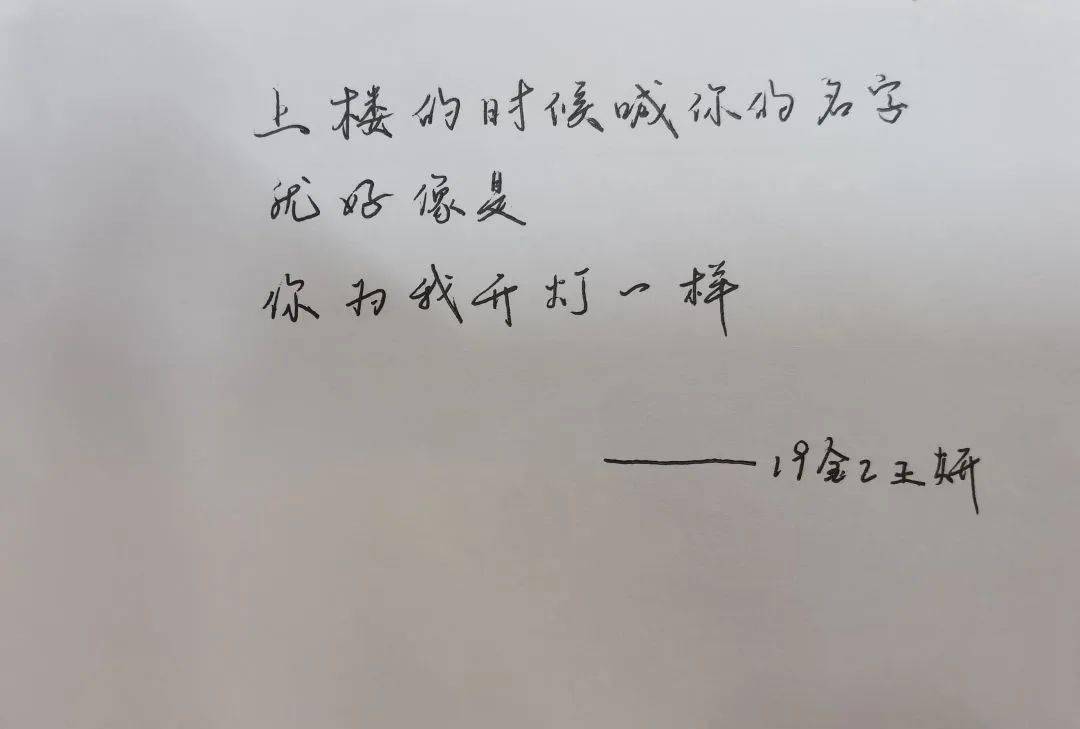 上楼的时候喊你的名字
就好像是
你为我开灯一样
——19金2王妍